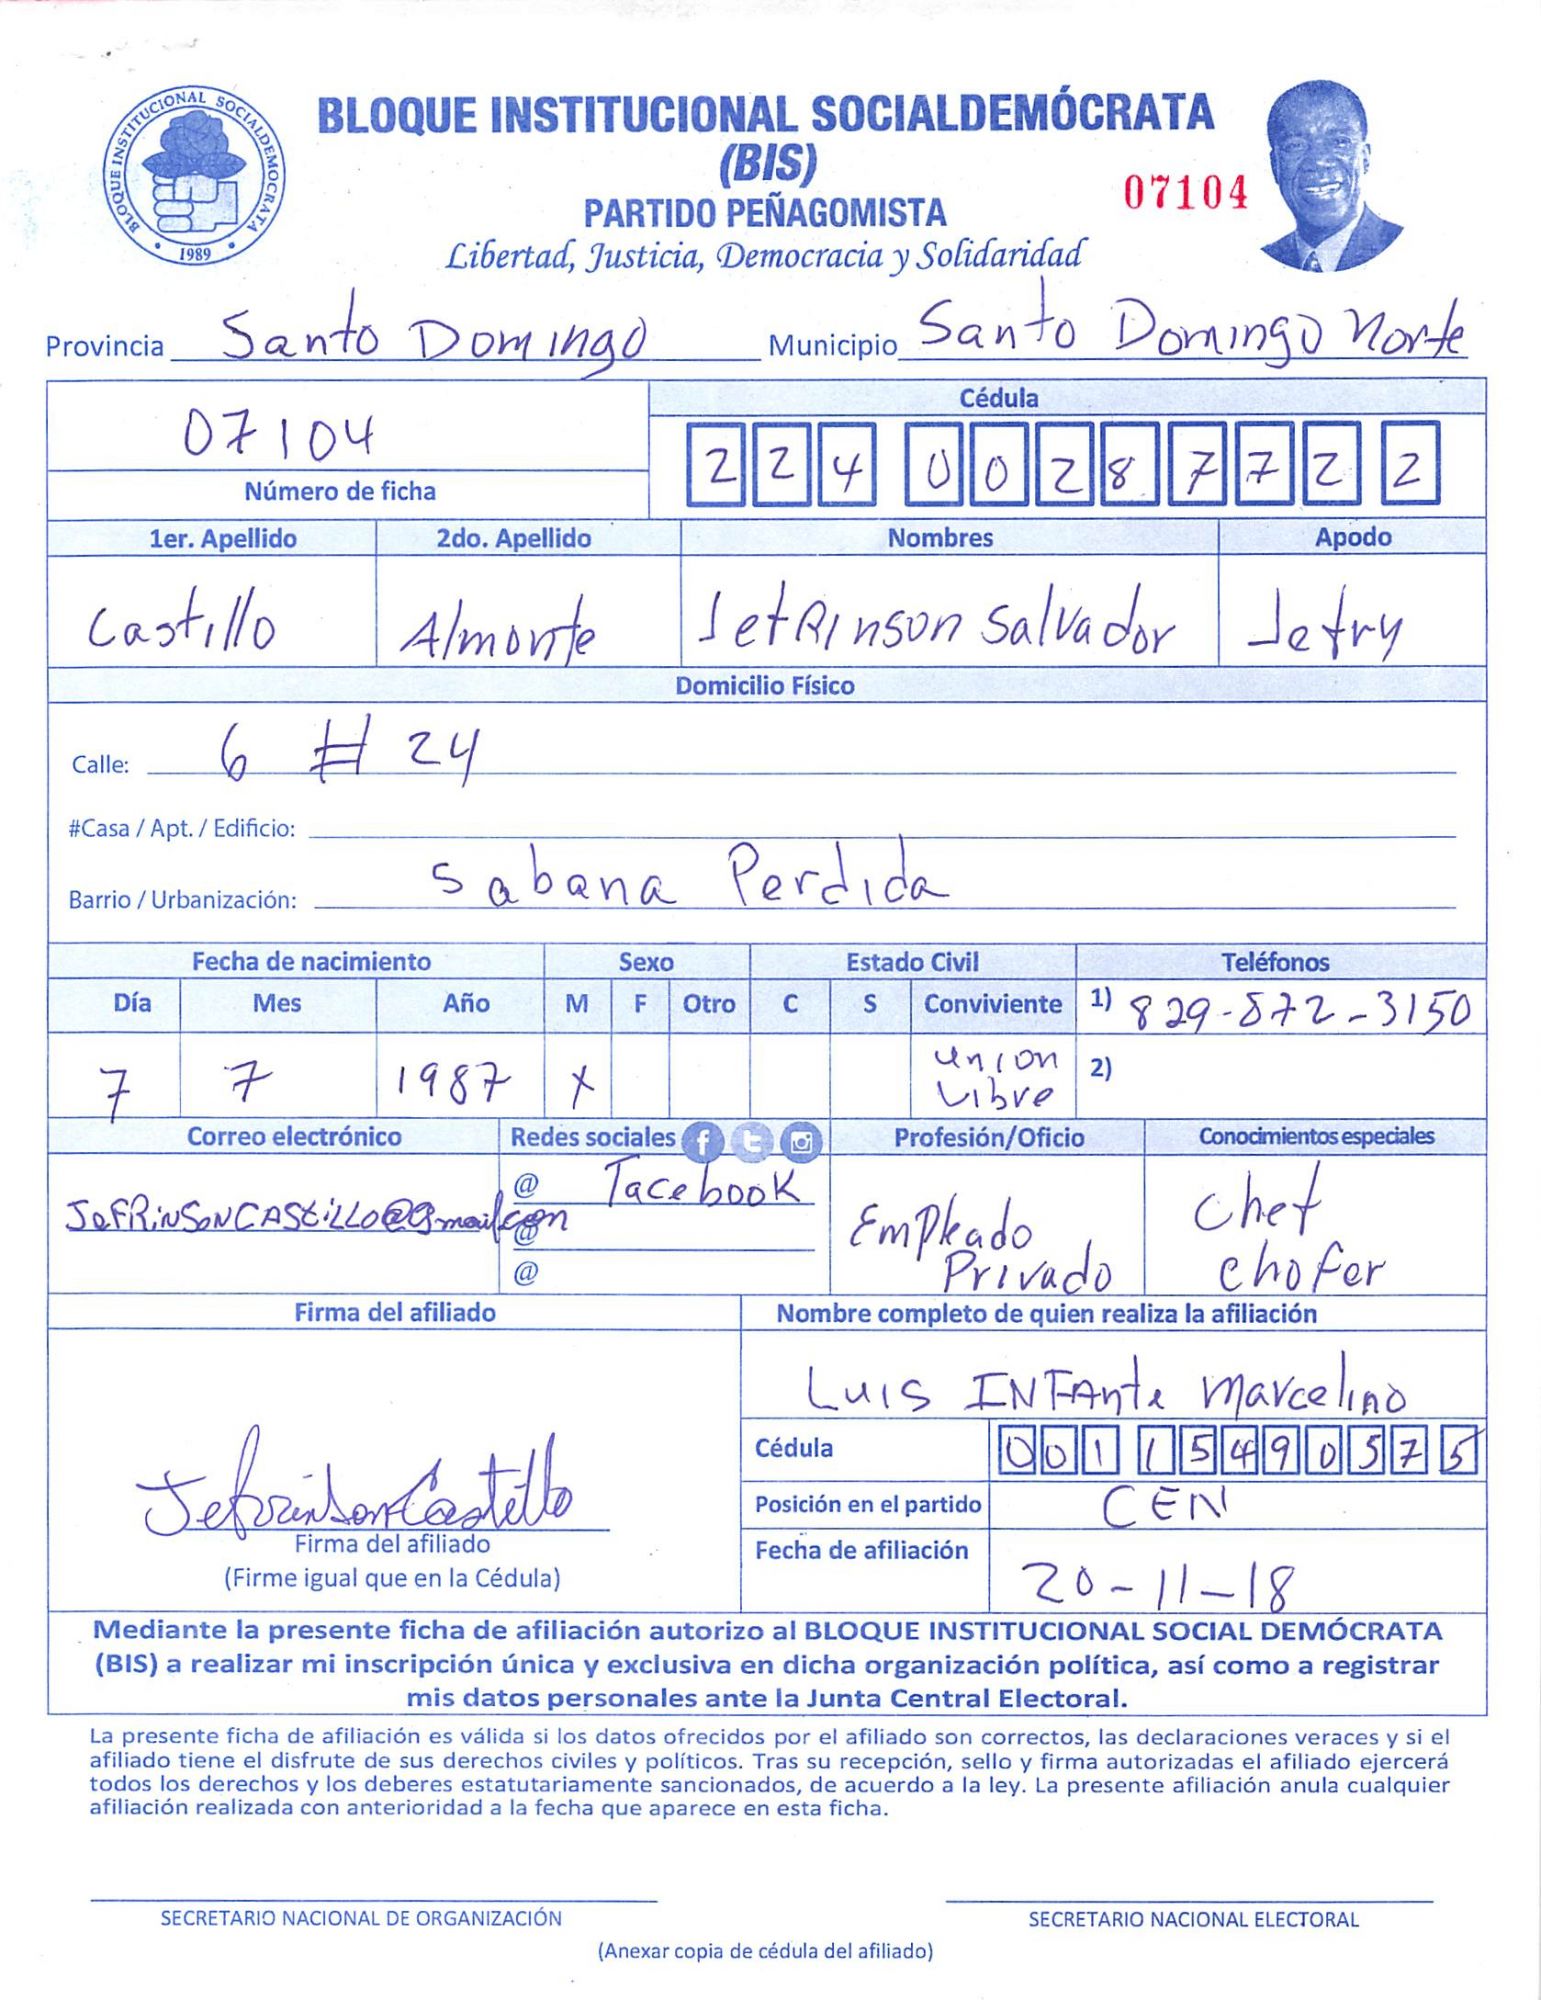 BLOQUE INSTITUCIONAL SOCIALDEMÓCRATA
1989
BLOQUE INSTITUCIONAL SOCIALDEMÓCRATA
(BIS)
PARTIDO PEÑAGOMISTA
07104
Libertad, Justicia, Democracia y Solidaridad
Provincia Santo Domingo Municipio Santo Domingo Norte
07104
Número de ficha
Cédula
224 0028772 2
1er. Apellido 2do. Apellido Nombres Apodo
Castillo Almonte Jefrinson Salvador Jefry
Domicilio Físico
Calle: 6 # 24
#Casa / Apt. / Edificio:
Barrio / Urbanización: Sabana Perdida
Fecha de nacimiento Sexo Estado Civil Teléfonos
Día Mes Año M F Otro C S Conviviente 1) 829-872-3150
7 7 1987 x union libre 2)
Correo electrónico Redes sociales Profesión/Oficio Conocimientos especiales
JeFRiNSoNCAStiLLO@gmail.com
@ Facebook
@
@
Empleado
Privado
Chef
Chofer
Firma del afiliado Nombre completo de quien realiza la afiliación
Luis INFAnte Marcelino
Cédula 001 1549057 5
Posición en el partido CEN
Fecha de afiliación 20-11-18
Jefrinson Castillo
Firma del afiliado
(Firme igual que en la Cédula)
Mediante la presente ficha de afiliación autorizo al BLOQUE INSTITUCIONAL SOCIAL DEMÓCRATA
(BIS) a realizar mi inscripción única y exclusiva en dicha organización política, así como a registrar
mis datos personales ante la Junta Central Electoral.
La presente ficha de afiliación es válida si los datos ofrecidos por el afiliado son correctos, las declaraciones veraces y si el
afiliado tiene el disfrute de sus derechos civiles y políticos. Tras su recepción, sello y firma autorizadas el afiliado ejercerá
todos los derechos y los deberes estatutariamente sancionados, de acuerdo a la ley. La presente afiliación anula cualquier
afiliación realizada con anterioridad a la fecha que aparece en esta ficha.
SECRETARIO NACIONAL DE ORGANIZACIÓN SECRETARIO NACIONAL ELECTORAL
(Anexar copia de cédula del afiliado)